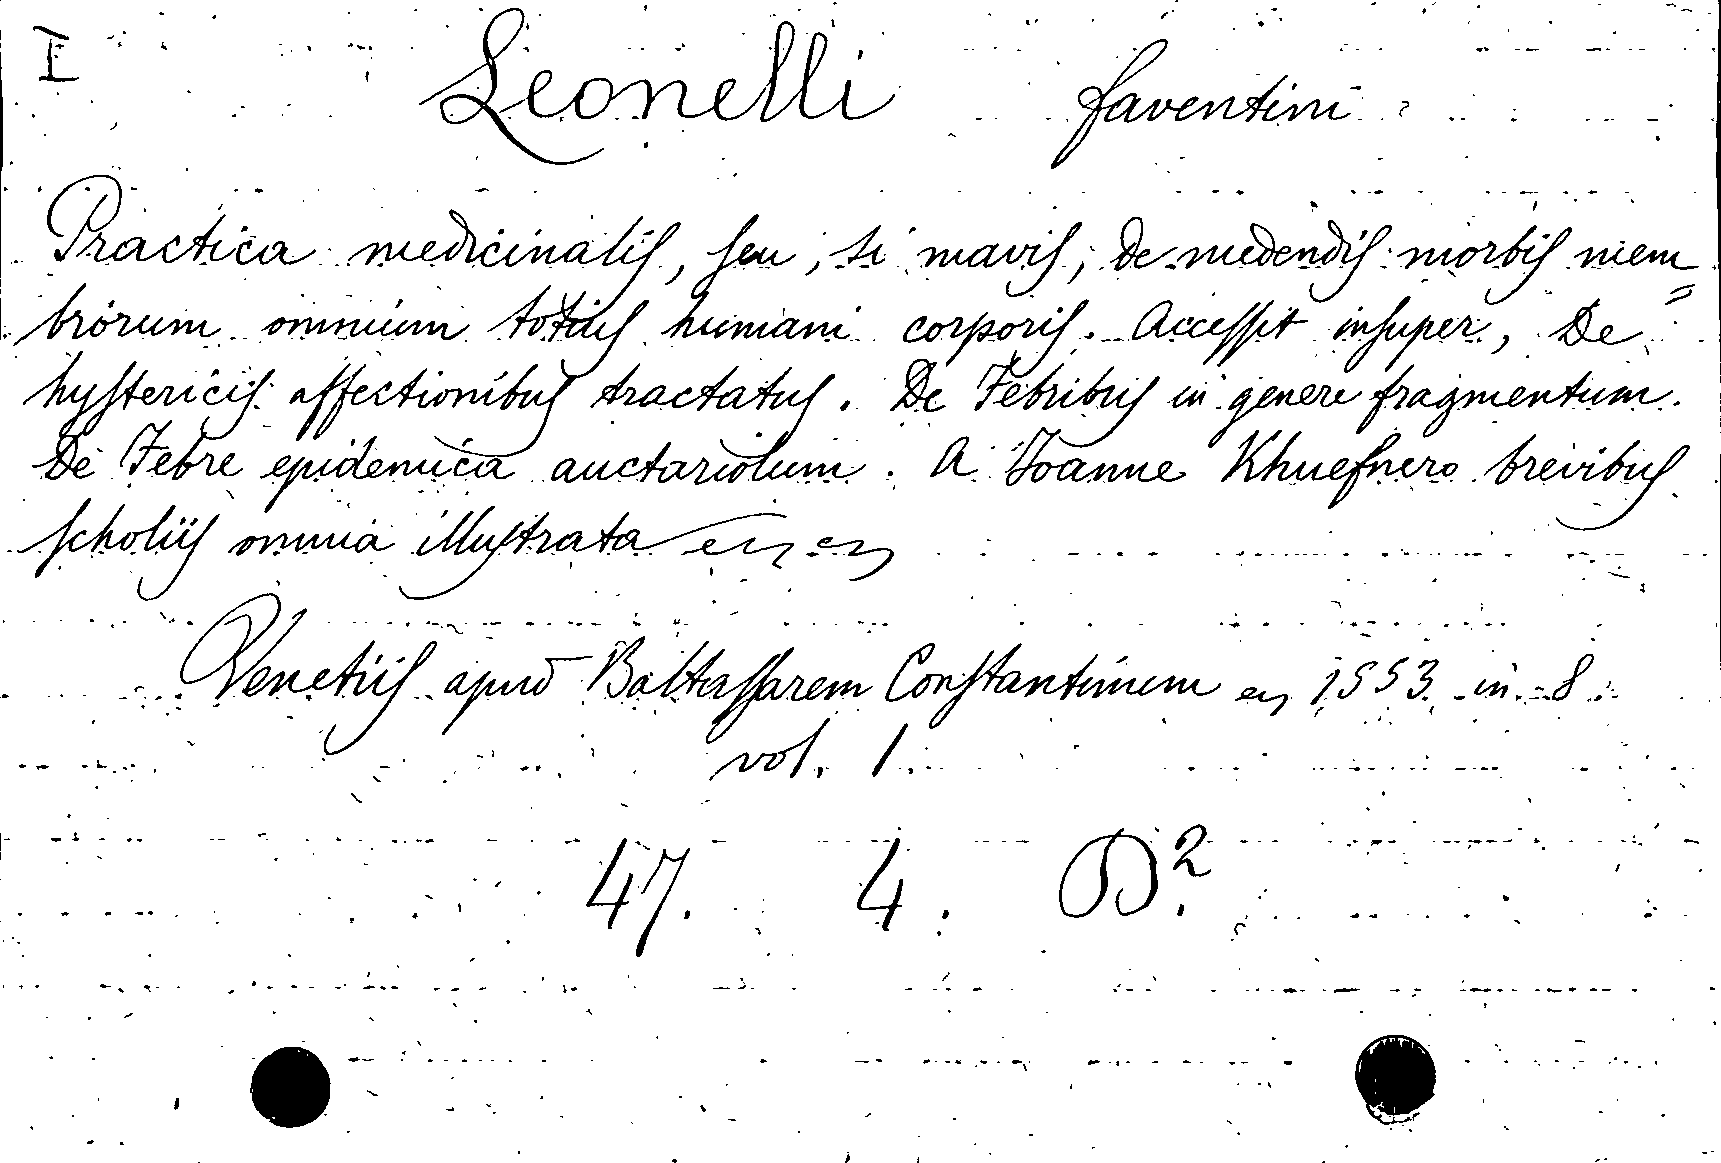 I
Leonelli faventini
Practica medicinalis, seu, si mavis, De medendis morbis mem=
brorum omnium totius humani corporis. Accessit insuper, De
hystericis affectionibus tractatus. De Febribus in genere fragmentum.
De Febre epidemica auctariolum. A Joanne Khuefnero brevibus
scholiis omnia illustrata
Venetiis apud Baltassarem Constantinum 1553. in 8.
vol. 1.
47. 4. D².